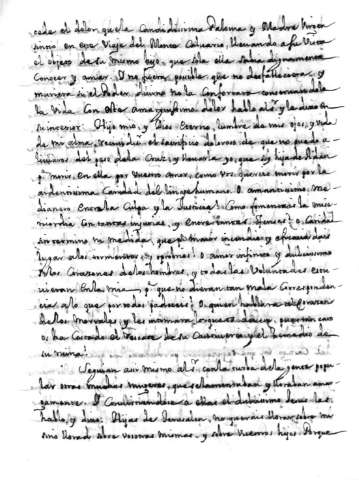 cede el dolor que la Candidissima Paloma y Madre Virgen
sintio en este Viaje del Monte Calvario, llevando a su Vista
el objeto de su mismo Hijo, que sola ella sabia dignamente
Conocer y amar. Y no fuera posible que no desfalleciera y
muriera si el Poder divino no la Confortara conservandola
la Vida. Con este Amarguissimo dolor hablo al Sr. y le dixo en
su interior. Hijo mio, y Dios Eterno, lumbre de mis ojos, y Vida
de mi alma, recevid Sr. el sacrificio doloroso de que no puedo a
liviaros del peso de la Cruz, y llevarla yo, que soy hija de Adan
p.ª morir en ella por Vuestro Amor, como Vos quereis morir por la
ardentissima Caridad del linage humano. O amantissimo Me-
dianero entre la Culpa, y la Justicia! Como fomentais la mise-
ricordia con tantas injurias, y entre tantas ofensas! O, Caridad
sin termino ni medida, que p.ª mayor incendio y eficacia dais
lugar a los tormentos, y oprobios! O amor infinito y dulcissimo
si los Corazones de los hombres, y todas las Voluntades estu
vieran en la mia, p.ª que no dieran tan mala Corresponden
cia a lo que por todos padeceis! O quien hablara a los corazones
de los Mortales, y les intimara lo que os deven, pues tan caro
os ha Costado el Rescate de su Cautiverio, y el Remedio de
su ruina!
Seguian assi mismo al Sr. con la turba de la gente popu
lar otras muchas mugeres, que se lamentaban y lloraban amar
gamente. Y Convirtiendose a ellas el dulcissimo Jesus las
hablo, y dixo: Hijas de Jerusalen, no querais llorar sobre mi
sino llorad sobre vosotras mismas, y sobre Vuestros hijos Porque